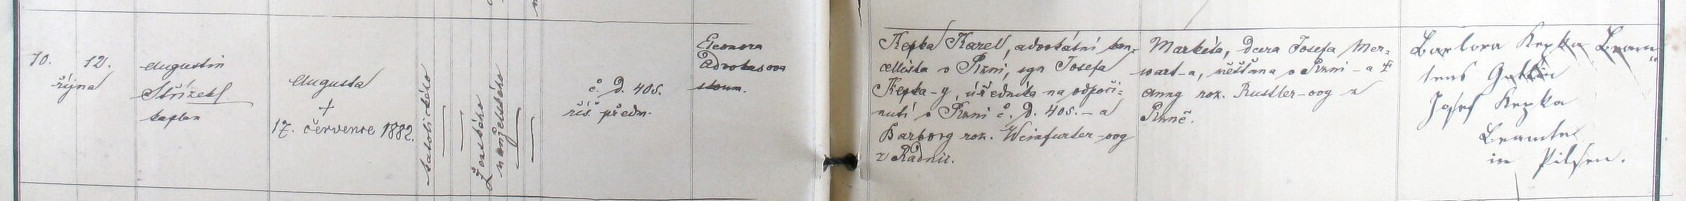 10. 12.
října
Augustin
Střízek
kaplan
Augusta
†
17. července 1882.
katolického
Ženského
manželského
č. D. 405.
říš. předm.
Eleonora
Advokasova
Kepka Karel, advokátní kan-
cellista v Plzni, syn Josefa
Kepka-y, úředníka na odpoči-
nutí v Plzni č. D. 405. - a
Barbory roz. Weinfurter-ovy
z Radnic.
Markéta, dcera Josefa Mer-
wart-a, měšťana v Plzni - a †
Anny roz. Kustler-ovy z
Plzně.
Barbora Kepka Beam-
tens Gattin
Josef Kepka
Beamte
in Pilsen.